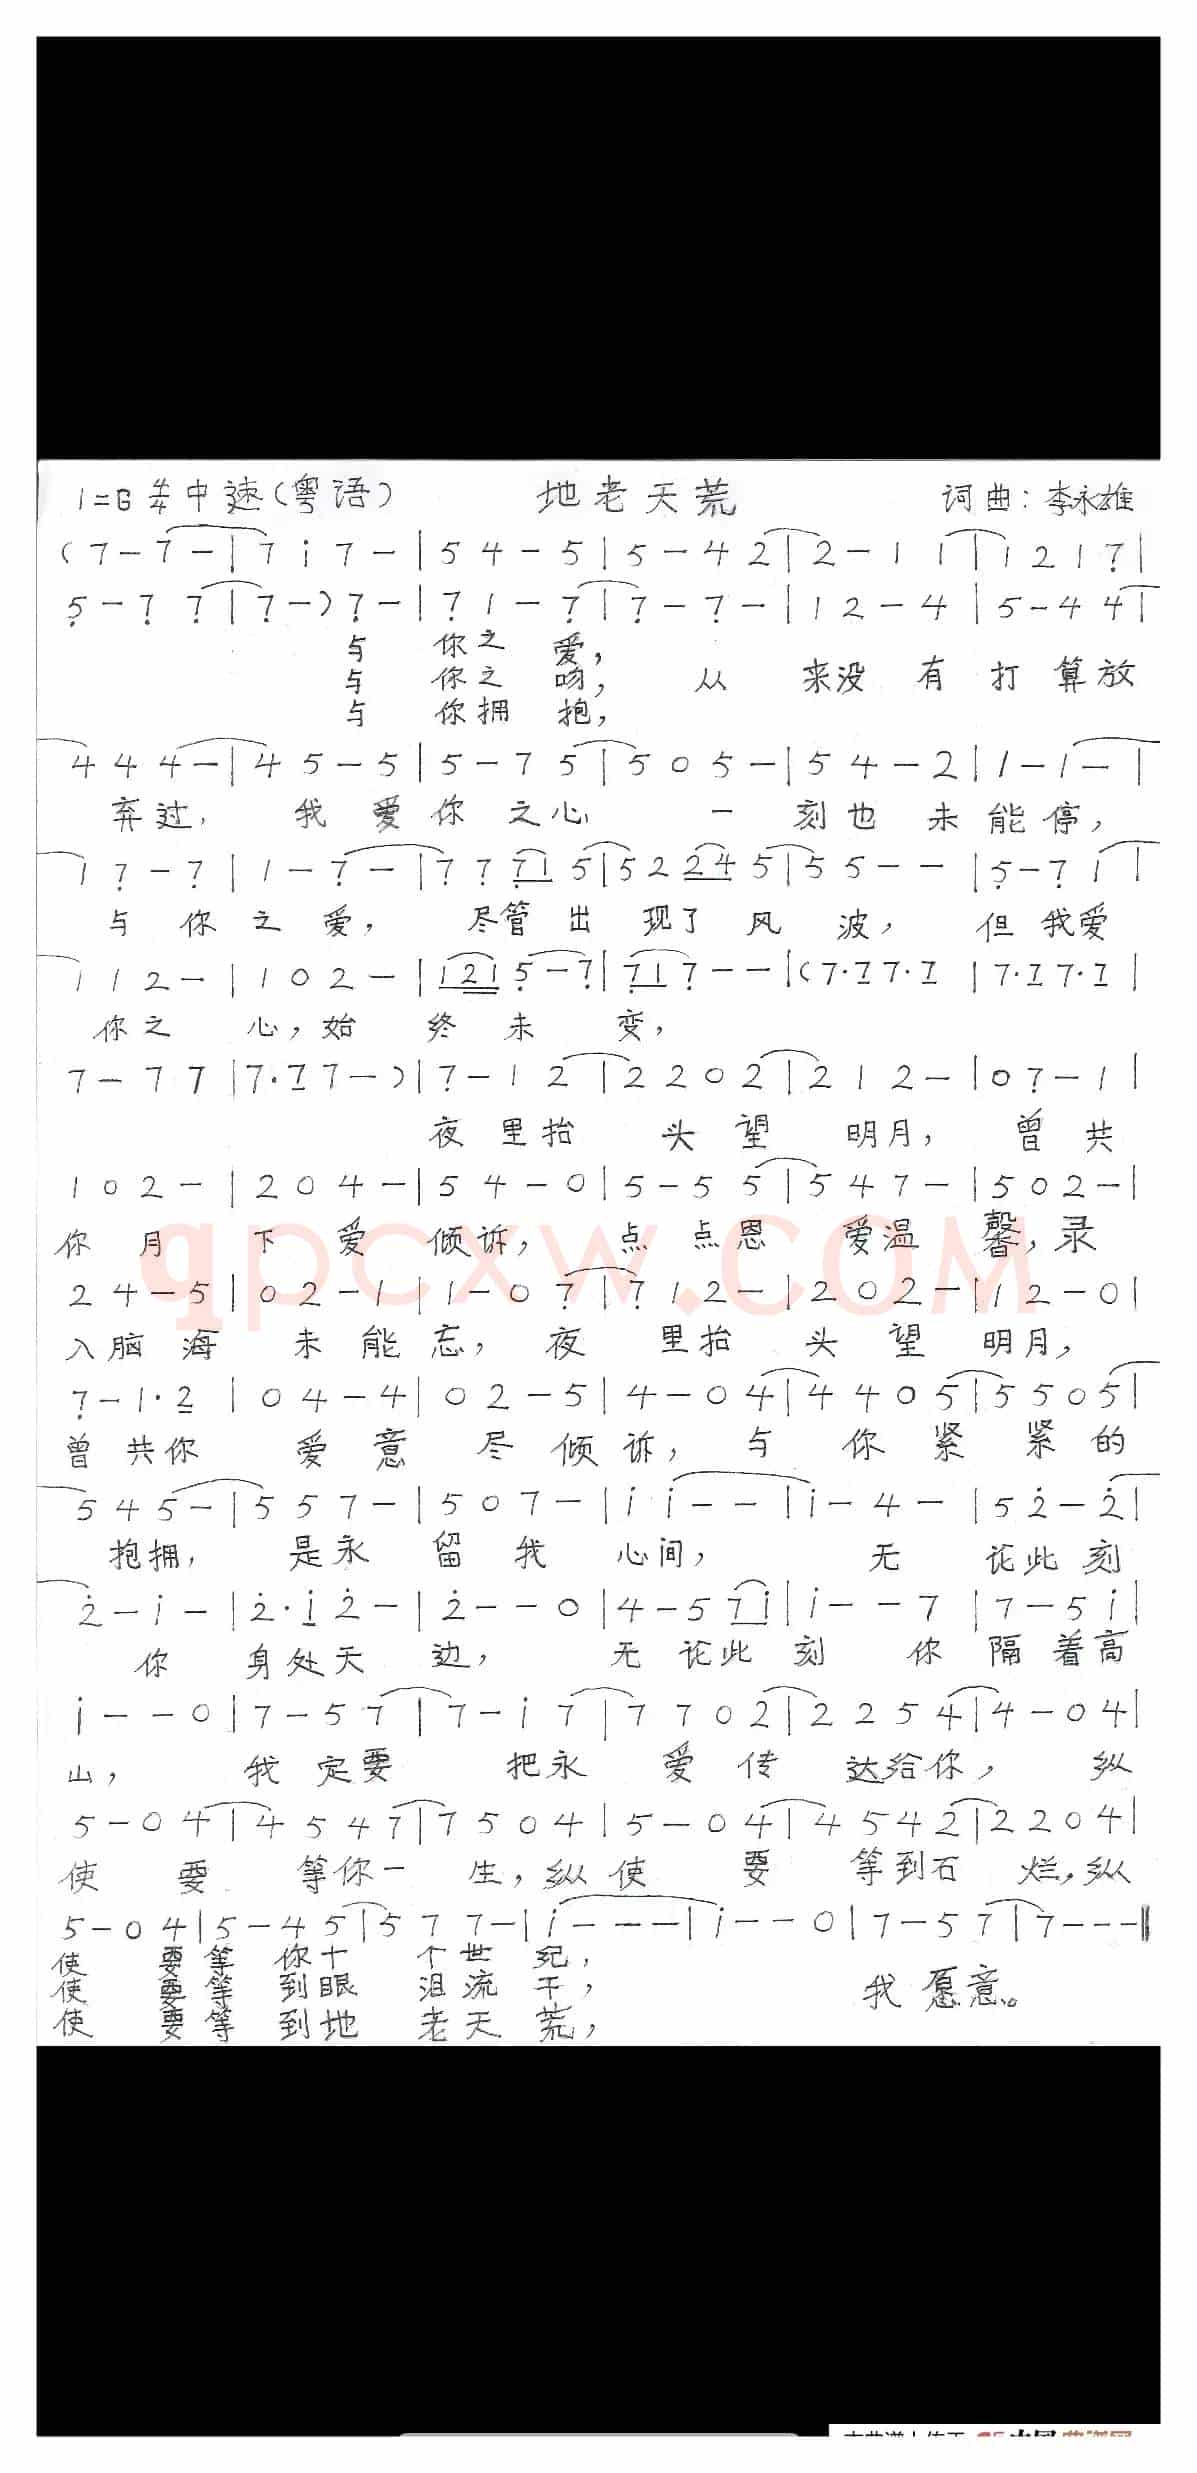 1=G 4/4 中速(粤语) 地老天荒 词曲：李永雄
(7-7-|7i7-|54-5|5-42|2-11|1217̣|
5̣-7̣7̣|7̣-)7̣-|7̣1-7̣|7̣-7̣-|12-4|5-44|
与 你之 爱，
与 你之 吻， 从 来没 有 打 算放
与 你拥 抱，
444-|45-5|5-75|505-|54-2|1-1-|
弃过， 我 爱 你 之心 一 刻也 未能停，
17̣-7̣|1-7̣-|7̣7̣7̣15|52245|55--|5̣-7̣1|
与 你 之 爱， 尽管 出 现了 风 波， 但 我爱
112-|102-|1215̣-7̣|7̣17̣--|(7·17·1|7·17·1|
你之 心，始 终 未 变，
7-77|7·17-)|7̣-12|2202|212-|07̣-1|
夜 里抬 头 望 明月， 曾 共
102-|204-|54-0|5-55|547-|502-|
你 月 下 爱 倾诉， 点 点恩 爱温 馨，录
24-5|02-1|1-07̣|7̣12-|202-|12-0|
入脑 海 未 能 忘， 夜 里抬 头 望 明月，
7̣-1·2|04-4|02-5|4-04|4405|5505|
曾 共你 爱 意 尽 倾 诉， 与 你 紧 紧 的
545-|557-|507-|ii--|i-4-|52̇-2̇|
抱拥， 是永 留 我 心间， 无 论此 刻
2̇-i-|2̇·i2̇-|2̇--0|4-57i|i--7|7-5i|
你 身处天 边， 无 论此 刻 你 隔 着高
i--0|7-57|7-i7|7702|2254|4-04|
山， 我 定要 把永 爱 传 达给你， 纵
5-04|4547|7504|5-04|4542|2204|
使 要 等你一 生，纵 使 要 等到石 烂，纵
5-04|5-45|577-|i---|i--0|7-57|7---‖
使 要 等 你十 个 世 纪，
使 要 等 到眼 泪 流 干， 我 愿意。
使 要 等 到地 老 天 荒，
qpcxw.com